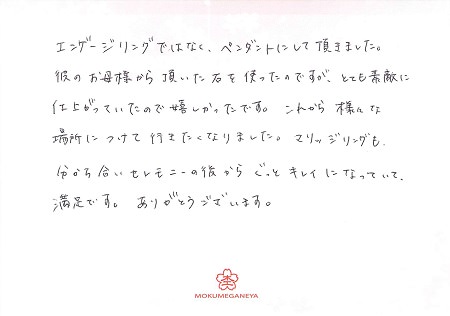 エンゲージリングではなく、ペンダントにして頂きました。
彼のお母様から頂いた石を使ったのですが、とても素敵に
仕上がっていたので嬉しかったです。これから様々な
場所につけて行きたくなりました。マリッジリングも、
分かち合いセレモニーの後からぐっとキレイになっていて、
満足です。ありがとうございます。
MOKUMEGANEYA